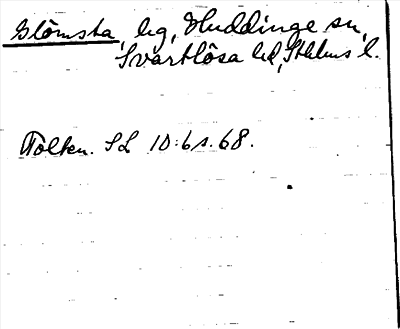 Glömsta, bg, Huddinge sn,
Svartlösa hd, Sthlms l.
Tolken. SL 10:6 s. 68.